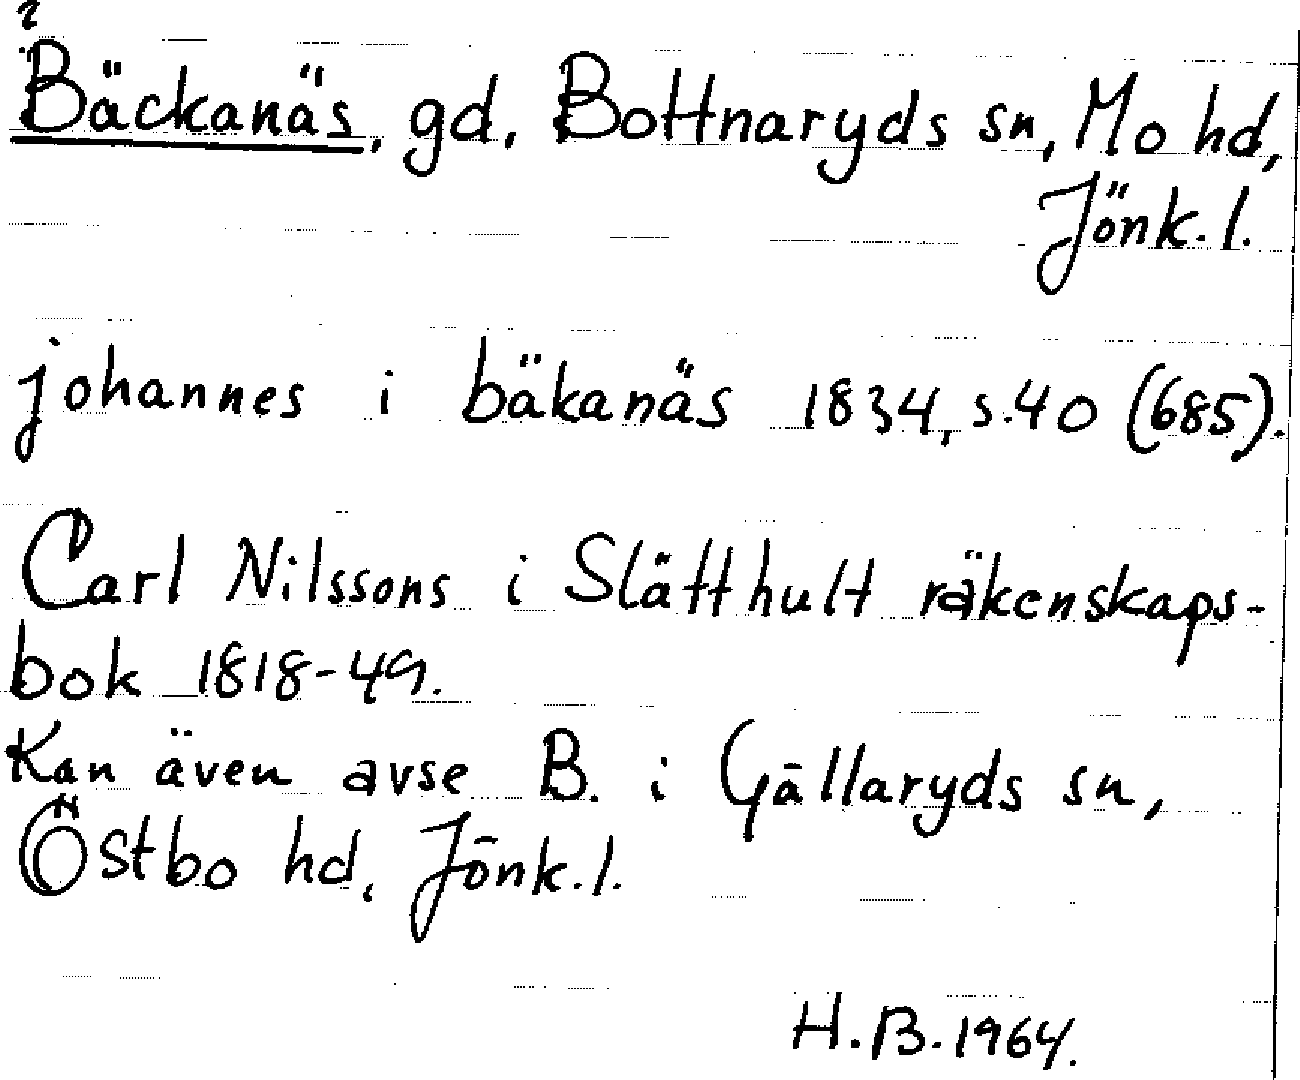 ?
Bäckanäs, gd, Bottnaryds sn, Mo hd,
Jönk. l.
johannes i bäkanäs 1834, s. 40 (685).
Carl Nilssons i Slätthult räkenskaps-
bok 1818-49.
Kan även avse B. i Gällaryds sn,
Östbo hd, Jönk. l.
H. B. 1964.